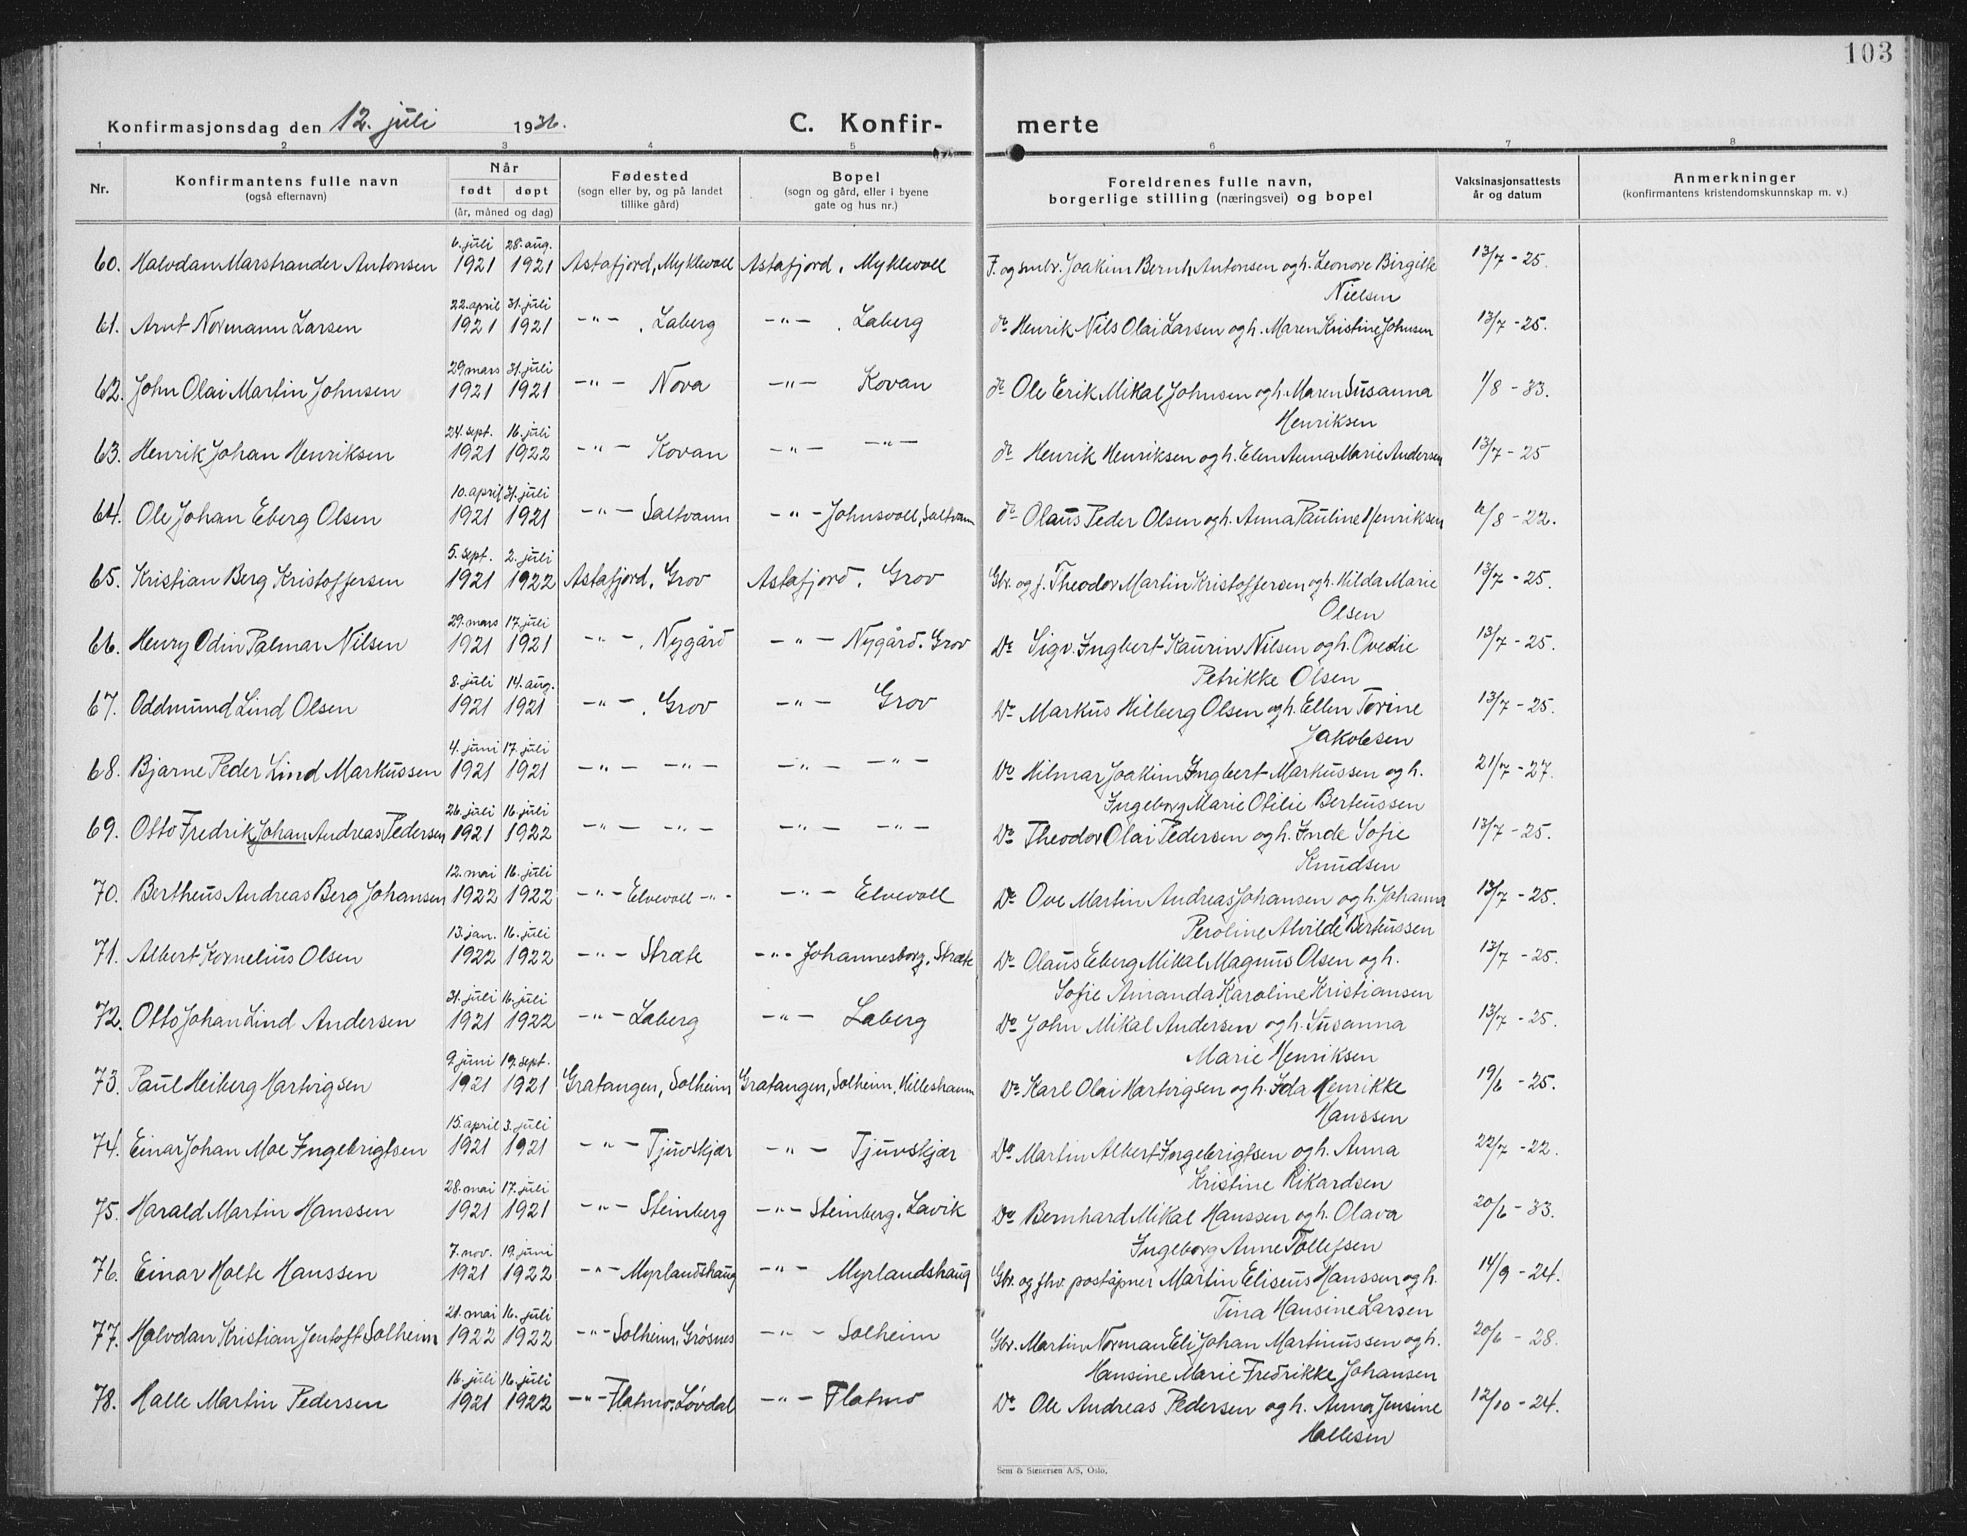 103
Konfirmasjonsdag den 12. juli 1936. C. Konfir- merte
1 2 3 4 5 6 7 8
Nr. Konfirmantens fulle navn (også efternavn) Når født døpt (år, måned og dag) Fødested (sogn eller by, og på landet tillike gård) Bopel (sogn og gård, eller i byene gate og hus nr.) Foreldrenes fulle navn, borgerlige stilling (næringsvei) og bopel Vaksinasjonsattests år og datum Anmerkninger (konfirmantens kristendomskunnskap m. v.)
6. juli 28. aug.
60. Halvdan Marstrander Antonsen 1921 1921 Astafjord, Myklevoll Astafjord, Myklevoll F. og smbr. Joakim Bernh. Antonsen og h. Leonore Birgitte 13/7 - 25.
Nielsen
22. april 31. juli
61. Arnt Normann Larsen 1921 1921 -"- , Laberg -"- , Laberg do Henrik Nils Olai Larsen og h. Maren Kristine Johnsen 13/7 - 25.
29 mars 31. juli
62. John Olai Martin Johnsen 1921 1921 -"- Nova -"- Kovan do Ole Erik Mikal Johnsen og h. Maren Susanna 1/8 - 33.
Henriksen
24. sept. 16. juli
63. Henrik Johan Henriksen 1921 1922 -"- Kovan -"- -"- do Henrik Henriksen og h. Elen Anna Marie Andersen 13/7 - 25
10. april 31. juli
64. Ole Johan Eberg Olsen 1921 1921 -"- Saltvann -"- Johnsvoll, Saltvann do Olaus Peder Olsen og h. Anna Pauline Henriksen /8 - 22.
5. sept. 2. juli
65. Kristian Berg Kristoffersen 1921 1922 Astafjord, Grov Astafjord, Grov Gbr. og f. Theodor Martin Kristoffersen og h. Hilda Marie 13/7 - 25.
Olsen
29. mars 17. juli
66. Henry Odin Palmar Nilsen 1921 1921 -"- , Nygård -"- Nygård, Grov Do Sigv. Ingbert Kaurin Nilsen og h. Ovedie 13/7 - 25.
Petrikke Olsen
8. juli 14. aug.
67. Oddmund Lind Olsen 1921 1921 -"- , Grov -"- Grov Do Markus Hilberg Olsen og h. Ellen Torine 13/7 - 25.
Jakobsen
4. juni 17. juli
68. Bjarne Peder Lind Markussen 1921 1921 -"- -"- -"- -"- Do Hilmar Joakim Ingbert Markussen og h. 21/7 - 27.
Ingeborg Marie Otilie Berteussen
26. juli 16. juli
69. Otto Fredrik Johan Andreas Pedersen 1921 1922 -"- -"- -"- -"- Do Theodor Olai Pedersen og h. Inde Sofie 13/7 - 25.
Knudsen
12. mai 16. juli
70. Bertheus Andreas Berg Johansen 1922 1922 -"- Elvevoll -"- -"- Elvevoll Do Ove Martin Andreas Johansen og h. Johanna 13/7 - 25.
Peroline Alvilde Berteussen
13. jan. 16. juli
71. Albert Kornelius Olsen 1922 1922 -"- Stræte -"- Johannesborg, Stræte Do Olaus Eberg Mikal Magnus Olsen og h. 13/7 - 25.
Sofie Amanda Karoline Kristiansen
31. juli 16. juli
72. Otto Johan Lind Andersen 1921 1922 -"- Laberg -"- Laberg Do John Mikal Andersen og h. Susanna 13/7 - 25.
Marie Henriksen
9. juni 19. sept.
73. Paul Heiberg Hartvigsen 1921 1921 Gratangen, Solheim Gratangen, Solheim, Hilleshamn Do Karl Olai Hartvigsen og h. Ida Henrikke 19/6 - 25.
Hanssen
15. april 3. juli
74. Einar Johan Moe Ingebrigtsen 1921 1921 -"- Tjuvskjær -"- Tjuvskjær Do Martin Albert Ingebrigtsen og h. Anna 22/7 - 22.
Kristine Rikardsen
28. mai 17. juli
75. Harald Martin Hanssen 1921 1921 -"- Steinberg -"- Steinberg, Lavik Do Bernhard Mikal Hanssen og h. Olava 20/6 - 33.
Ingeborg Anne Tollefsen
7. nov. 19. juni
76. Einar Holte Hanssen 1921 1922 -"- Myrlandshaug -"- Myrlandshaug Gbr. og fhv. poståpner Martin Eliseus Hanssen og h. 14/9 - 24.
Tina Hansine Larsen
21. mai 16. juli
77. Halvdan Kristian Jentoft Solheim 1922 1922 -"- Solheim, Grøsnes -"- Solheim Gbr. Martin Norman Eli Johan Martinussen og h. 20/6 - 28.
Hansine Marie Fredrikke Johansen
16. juli 16. juli
78. Halle Martin Pedersen 1921 1922 -"- Flatmo, Løvdal -"- Flatmo Do Ole Andreas Pedersen og h. Anna Jensine 12/10 - 24.
Hallesen
Sem & Stenersen A/S, Oslo.